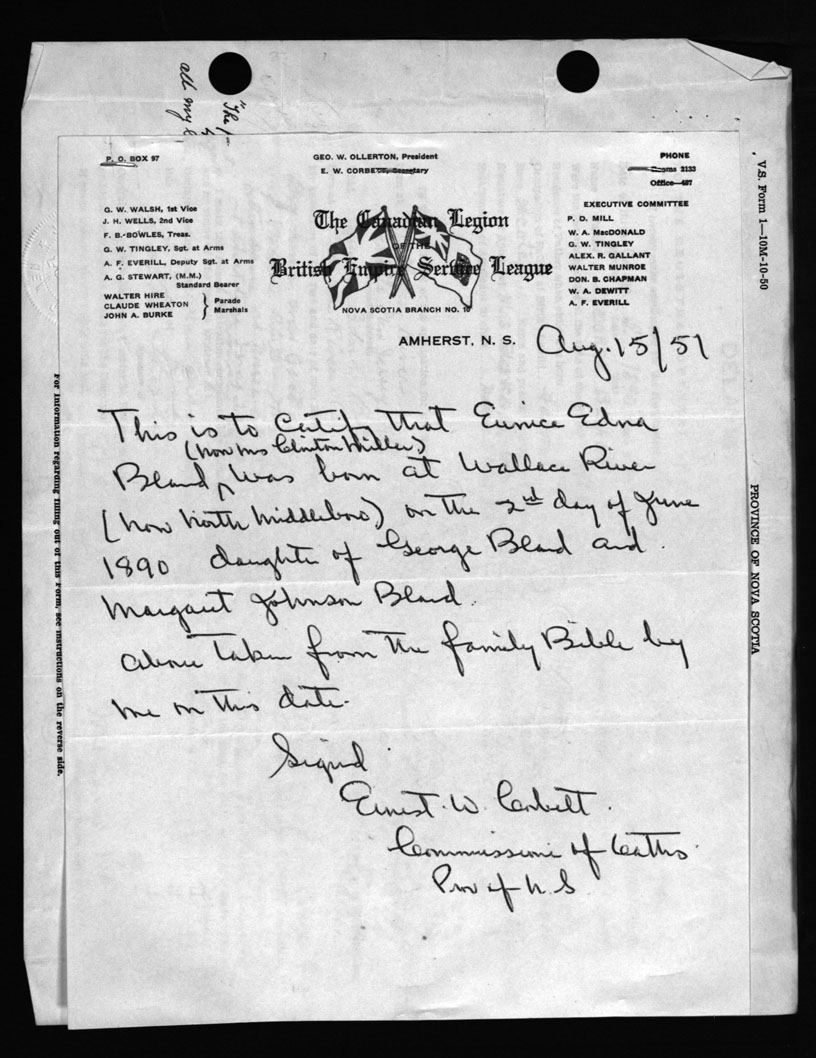 "The
all my
P. O. BOX 97
GEO. W. OLLERTON, President
E. W. CORBETT, Secretary
PHONE
Rooms 2133
Office—487
G. W. WALSH, 1st Vice
J. H. WELLS, 2nd Vice
F. B. BOWLES, Treas.
G. W. TINGLEY, Sgt. at Arms
A. F. EVERILL, Deputy Sgt. at Arms
A. G. STEWART, (M.M.)
Standard Bearer
WALTER HIRE
CLAUDE WHEATON
JOHN A. BURKE
Parade
Marshals
The Canadian Legion
OF THE
British Empire Service League
NOVA SCOTIA BRANCH NO. 10
EXECUTIVE COMMITTEE
P. D. MILL
W. A. MacDONALD
G. W. TINGLEY
ALEX. R. GALLANT
WALTER MUNROE
DON. B. CHAPMAN
W. A. DEWITT
A. F. EVERILL
AMHERST, N. S. Aug. 15/51
This is to Certify that Eunice Edna
(now Mrs Clinton Miller)
Bland, was born at Wallace River
(now North Middleboro) on the 2nd day of June
1890 daughter of George Bland and
Margaret Johnson Bland.
above taken from the family Bible by
me on this date.
Signed
Ernest. W. Corbett.
Commissioner of Oaths
Prov of N. S
V.S. Form 1—10M-10-50
PROVINCE OF NOVA SCOTIA
For information regarding filling out of this Form, see instructions on the reverse side.